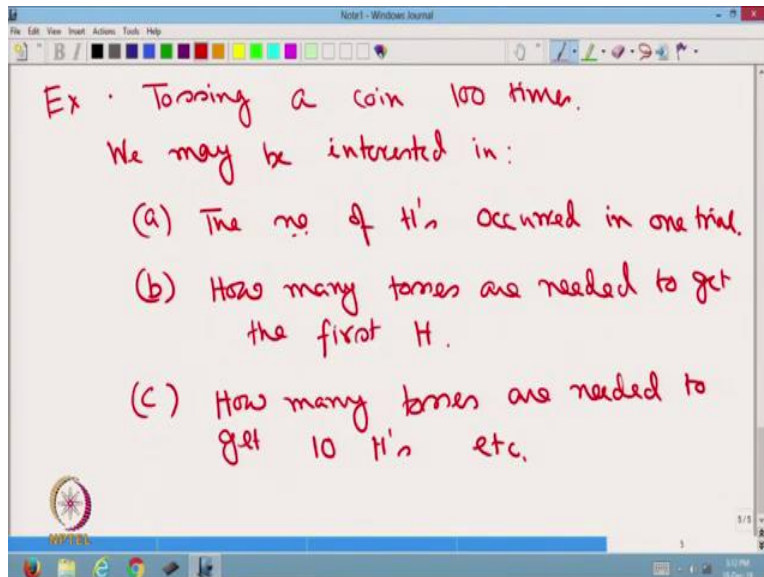 Note1 - Windows Journal
File Edit View Insert Actions Tools Help
Ex. Tossing a coin 100 times.
We may be interested in:
(a) The no. of H's occurred in one trial.
(b) How many tosses are needed to get
the first H.
(c) How many tosses are needed to
get 10 H's etc.
NPTEL
5/5
5
3:12 PM